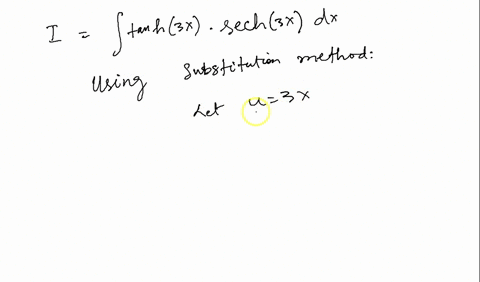 I = ∫ tanh(3x) . sech(3x) dx
Using Substitution method:
Let u = 3x